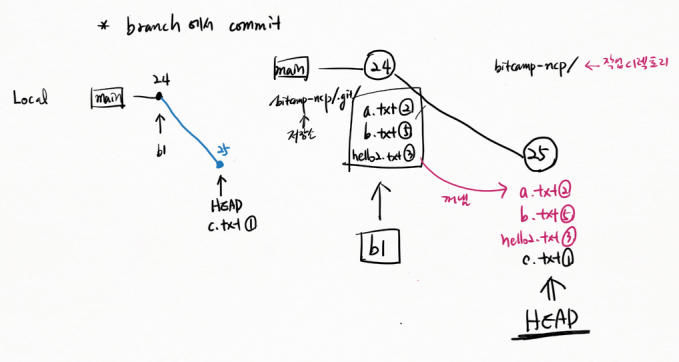 * branch 에서 commit
Local
main
24
b1
25
HEAD
c.txt ①
main
24
/bitcamp-ncp/.git/
저장소
a.txt ②
b.txt ⑤
hello2.txt ③
b1
꺼냄
bitcamp-ncp/ ← 작업 디렉토리
25
a.txt ②
b.txt ⑤
hello2.txt ③
c.txt ①
HEAD